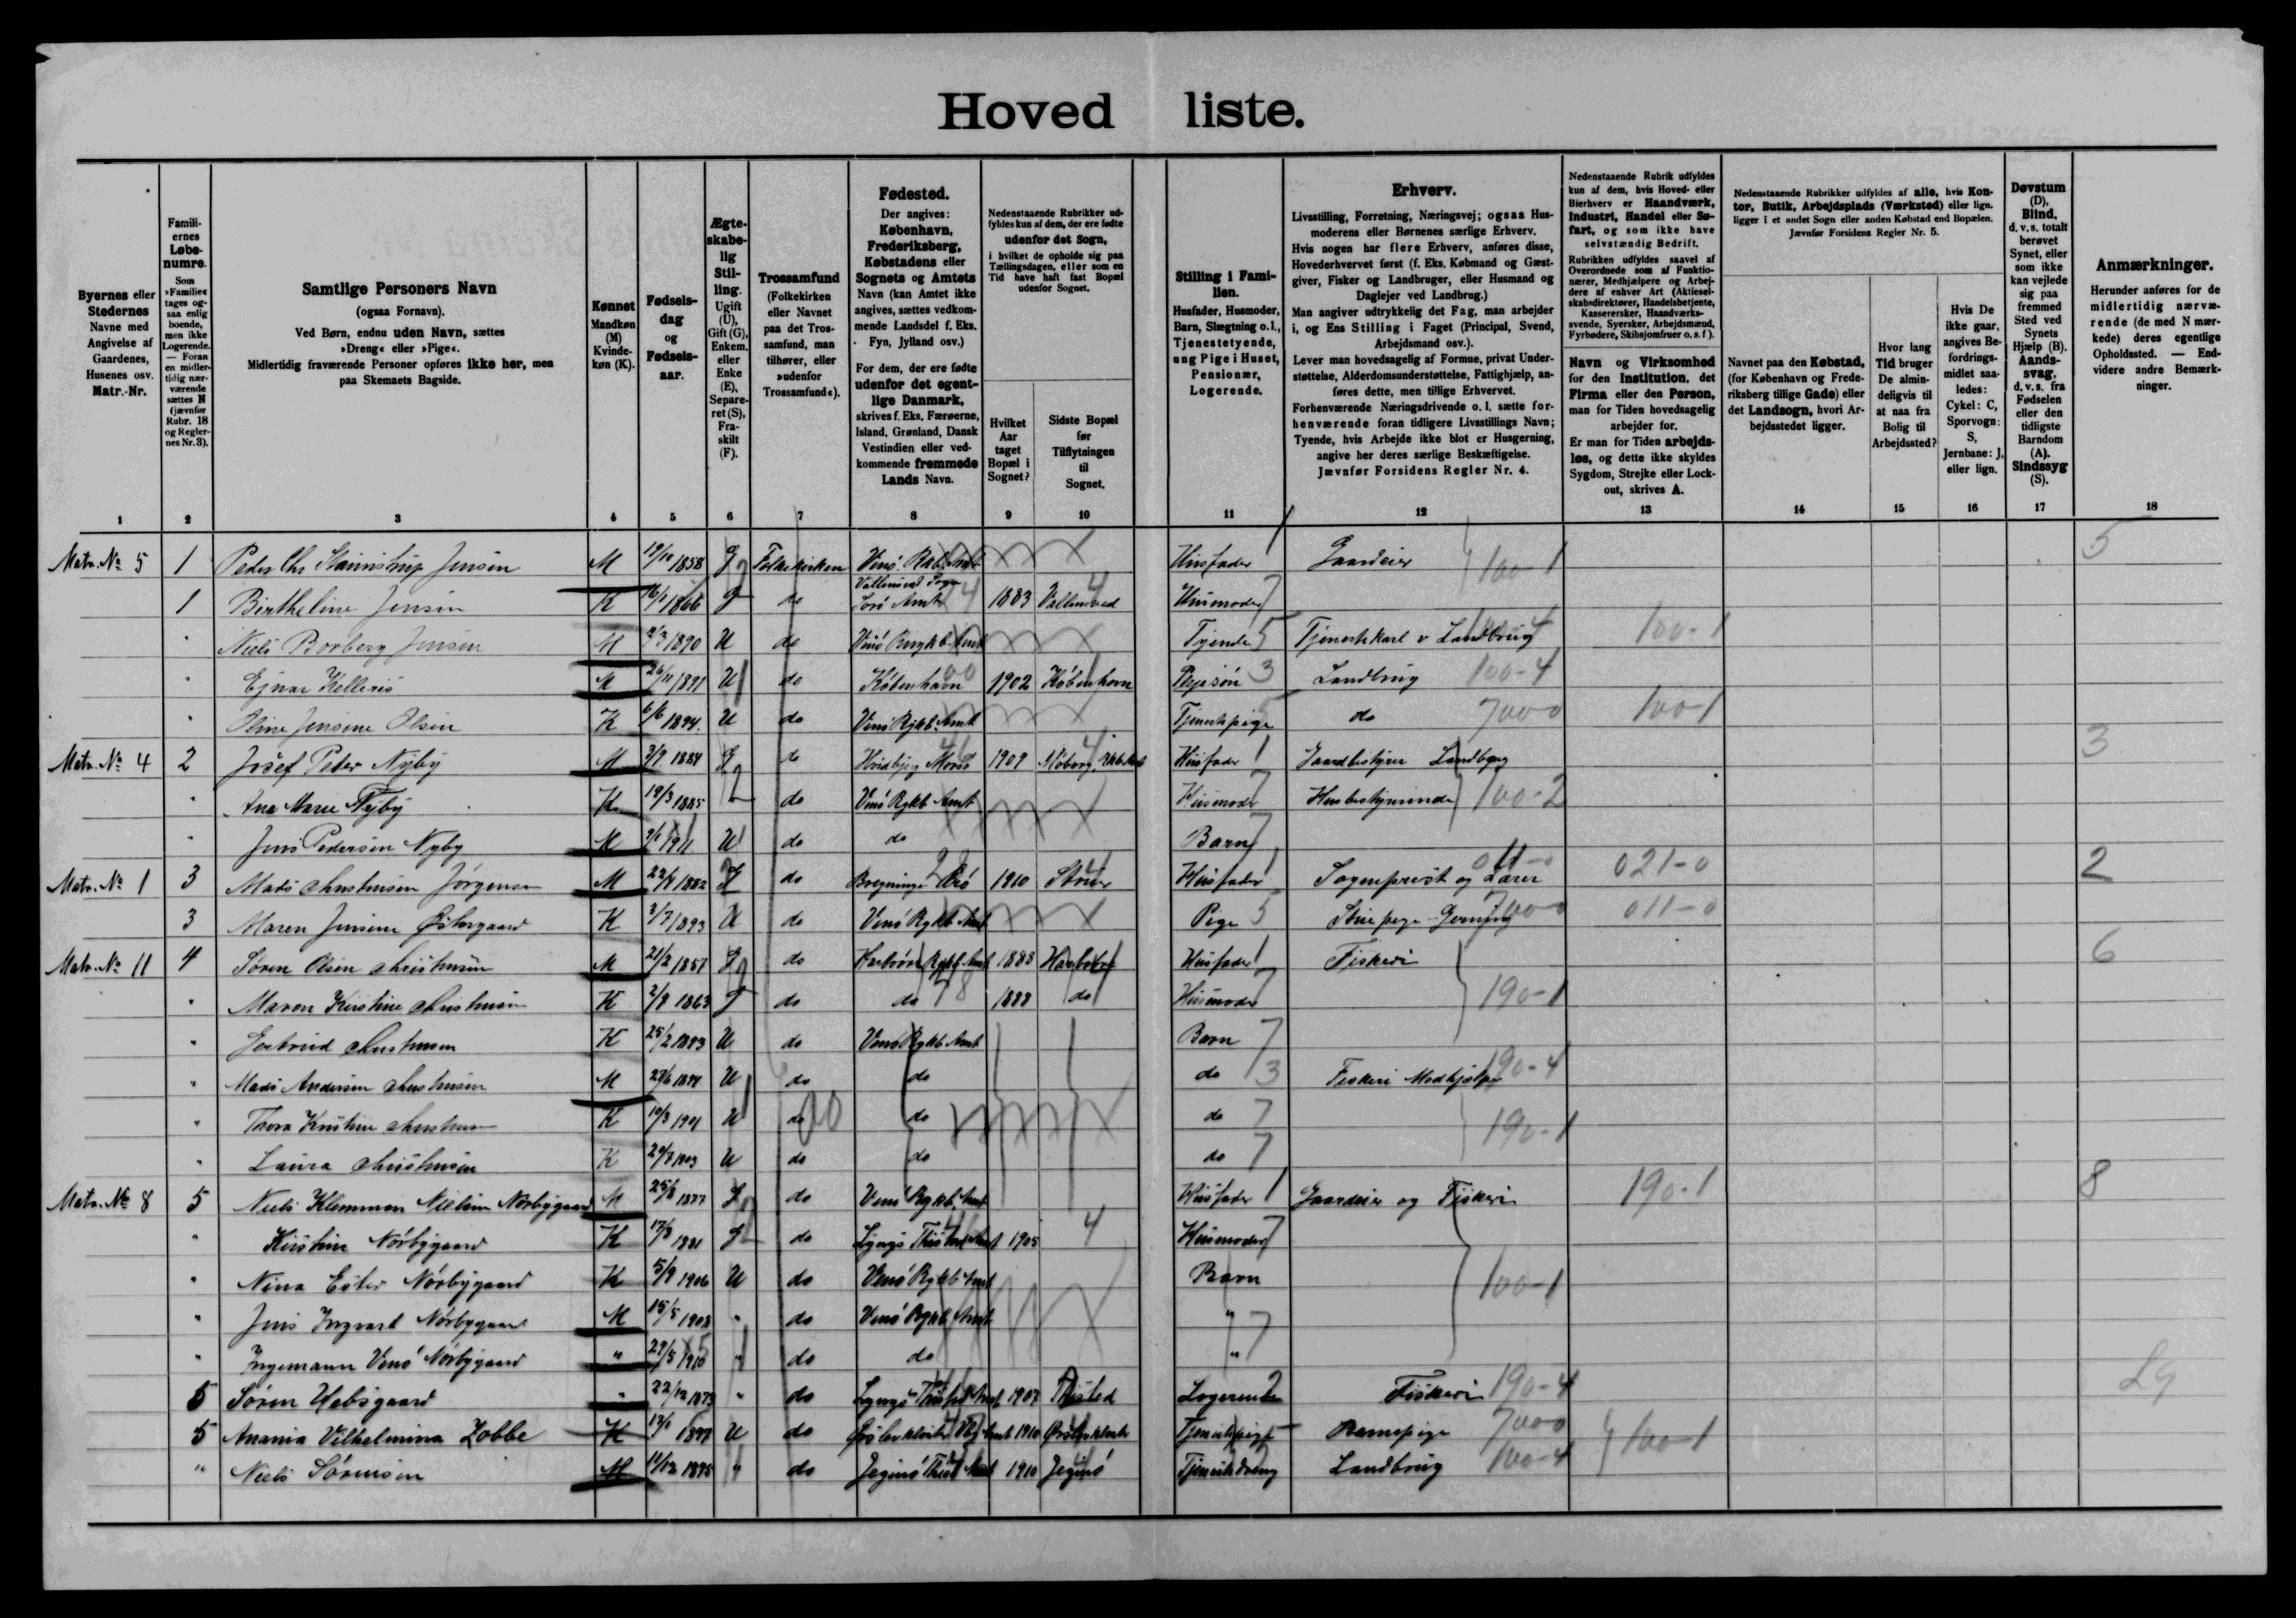 Hoved liste.
Byernes eller Stedernes Navne med Angivelse af Gaardenes, Husenes osv. Matr.-Nr.
Familiernes Løbenumre. Som »Familie« tages ogsaa enlig boende, men ikke Logerende. — Foran en midlertidig nærværende sættes N (jævnfør Rubr. 18 og Reglernes Nr. 3).
Samtlige Personers Navn (ogsaa Fornavn). Ved Børn, endnu uden Navn, sættes »Dreng« eller »Pige«. Midlertidig fraværende Personer opføres ikke her, men paa Skemaets Bagside.
Kønnet Mandkøn (M) Kvindekøn (K).
Fødselsdag og Fødselsaar.
Ægteskabelig Stilling. Ugift (U), Gift (G), Enkem. eller Enke (E), Separeret (S), Fraskilt (F).
Trossamfund (Folkekirken eller Navnet paa det Trossamfund, man tilhører, eller »udenfor Trossamfund«).
Fødested. Der angives: København, Frederiksberg, Købstadens eller Sognets og Amtets Navn (kan Amtet ikke angives, sættes vedkommende Landsdel f. Eks. Fyn, Jylland osv.) For dem, der ere fødte udenfor det egentlige Danmark, skrives f. Eks. Færøerne, Island, Grønland, Dansk Vestindien eller vedkommende fremmede Lands Navn.
Nedenstaaende Rubrikker udfyldes kun af dem, der ere fødte udenfor det Sogn, i hvilket de opholde sig paa Tællingsdagen, eller som en Tid have haft fast Bopæl udenfor Sognet.
Hvilket Aar taget Bopæl i Sognet?
Sidste Bopæl før Tilflytningen til Sognet.
Stilling i Familien. Husfader, Husmoder, Barn, Slægtning o. l., Tjenestetyende, ung Pige i Huset, Pensionær, Logerende.
Erhverv. Livsstilling, Forretning, Næringsvej; ogsaa Husmoderens eller Børnenes særlige Erhverv. Hvis nogen har flere Erhverv, anføres disse, Hovederhvervet først (f. Eks. Købmand og Gæstgiver, Fisker og Landbruger, eller Husmand og Daglejer ved Landbrug.) Man angiver udtrykkelig det Fag, man arbejder i, og Ens Stilling i Faget (Principal, Svend, Arbejdsmand osv.). Lever man hovedsagelig af Formue, privat Understøttelse, Alderdomsunderstøttelse, Fattighjælp, anføres dette, men tillige Erhvervet. Forhenværende Næringsdrivende o. l. sætte forhenværende foran tidligere Livsstillings Navn; Tyende, hvis Arbejde ikke blot er Husgerning, angive her deres særlige Beskæftigelse. Jævnfør Forsidens Regler Nr. 4.
Nedenstaaende Rubrik udfyldes kun af dem, hvis Hoved- eller Bierhverv er Haandværk, Industri, Handel eller Søfart, og som ikke have selvstændig Bedrift. Rubrikken udfyldes saavel af Overordnede som af Funktionærer, Medhjælpere og Arbejdere af enhver Art (Aktieselskabsdirektører, Handelsbetjente, Kasserersker, Haandværkssvende, Syersker, Arbejdsmænd, Fyrbødere, Skibsjomfruer o. s. f.).
Navn og Virksomhed for den Institution, det Firma eller den Person, man for Tiden hovedsagelig arbejder for. Er man for Tiden arbejdsløs, og dette ikke skyldes Sygdom, Strejke eller Lockout, skrives A.
Nedenstaaende Rubrikker udfyldes af alle, hvis Kontor, Butik, Arbejdsplads (Værksted) eller lign. ligger i et andet Sogn eller anden Købstad end Bopælen. Jævnfør Forsidens Regler Nr. 5.
Navnet paa den Købstad, (for København og Frederiksberg tillige Gade) eller det Landsogn, hvori Arbejdsstedet ligger.
Hvor lang Tid bruger De almindeligvis til at naa fra Bolig til Arbejdssted?
Hvis De ikke gaar, angives Befordringsmidlet saaledes: Cykel: C, Sporvogn: S, Jernbane: J, eller lign.
Døvstum (D). Blind, d. v. s. totalt berøvet Synet, eller som ikke kan vejlede sig paa fremmed Sted ved Synets Hjælp (B). Aandssvag, d. v. s. fra Fødselen eller den tidligste Barndom (A). Sindssyg (S).
Anmærkninger. Herunder anføres for de midlertidig nærværende (de med N mærkede) deres egentlige Opholdssted. — Endvidere andre Bemærkninger.
1 2 3 4 5 6 7 8 9 10 11 12 13 14 15 16 17 18
Matr. No 5 1 Peder Chr Jensen M 19/10 1858 G Folkekirken Venø. Husfader 1 Gaardeier 100-1 5
1 Birtheline Jensen K 1866 G do Sorø Amt 1883 Husmoder 7
" Niels Borberg Jensen M 1890 U do Venø Tyende 5 Tjenestekarl v Landbrug 100-4 100-1
" Ejnar Kelleris M 1891 U do København 1902 København Plejesøn 3 Landbrug 100-4
" Oline Jensine Olsen K 6/6 1894 U do Venø Rykb. Amt Tjenestepige 5 do 7000 100-1
Matr. No 4 2 Josef Peder Nyby M 3/9 1884 G do Hvidbjerg Morsø 1909 Husfader 1 Gaardbestyrer Landbrug 3
" Ana Marie Nyby K 19/3 1885 do Venø Rykb Amt Husmoder 7 Husbestyrerinde 100-2
" Jens Pedersen Nyby M 1911 U do do Barn 7
Matr. No 1 3 Mads Christensen Jørgensen M 1882 G do Bregninge Ærø 1910 Struer Husfader 1 Sognepræst og Lærer 011-0 021-0 2
3 Maren Jensine Østergaard K 3/7 1893 U do Venø Rykb Amt Pige 5 7000 011-0
Matr. No 11 4 Søren Olsen Christensen M 21/2 1857 G do Harboøre Rykb Amt 1888 Husfader 1 Fiskeri 6
" Maren Kirstine Christensen K 2/8 1863 G do do 1888 do Husmoder 7 190-1
" Christensen K 25/2 1893 U do Venø Rykb Amt Barn 7
" Mads Andersen Christensen M U do do do 3 Fiskeri Medhjælper 190-4
" Thora Kirstine Christensen K 10/3 1901 U do do do 7 190-1
" Laura Christensen K 1903 U do do do 7
Matr. No 8 5 Niels Klemmen Nielsen Nørbygaard M 25/8 1877 G do Venø Rykb. Amt Husfader 1 Gaardeier og Fiskeri 190-1 8
" Kirstine Nørbygaard K 1881 G do Lyngs Thisted Amt 1905 4 Husmoder 7
" Nina Ester Nørbygaard K 5/9 1906 U do Venø Rykb Amt Barn 100-1
" Jens Ingvart Nørbygaard M 15/5 1908 " do Venø Rykb. Amt " 7
" Ingemann Venø Nørbygaard " 29/5 1910 " do do "
5 Søren Uebsgaard " 22/12 1873 " do Lyngs Thisted Amt 1907 Thisted Logerende 2 Fiskeri 190-4
5 Anania Vilhelmina Zobbe K 1897 U do 1910 Tjenestepige Barnepige 7000 100-1
" Niels Sørensen M 11/12 1895 " do Jegindø Thisted Amt 1910 Jegindø Tjenestedreng Landbrug 100-4